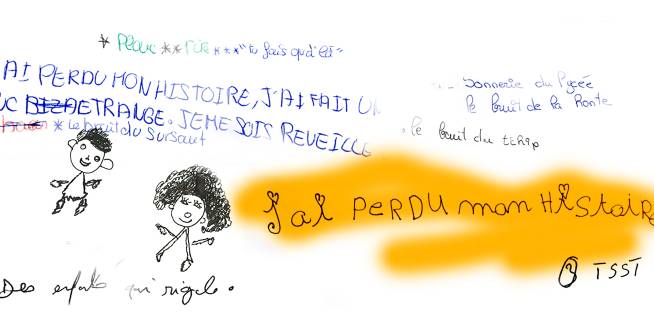 * Pleuc ** rire *** "tu fais qu'est"
AI PERDU MON HISTOIRE, J'AI FAIT UN
UC ETRANGE. JE ME SUIS REVEILLE
* Le bruit du sursaut
sonnerie du lycée
le bruit de la Honte
le bruit du tchip
j'ai PERDU mon HiStoiRe
TSST
Des enfants qui rigole.